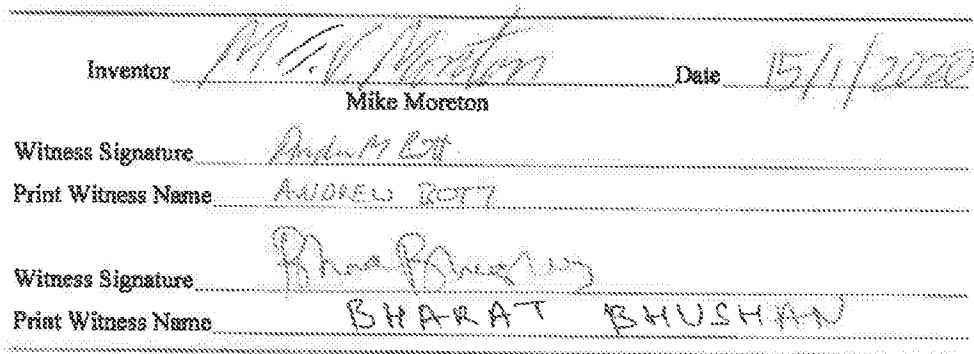 Inventor M. G. V. Moreton Date 15/1/2020
Mike Moreton
Witness Signature
Print Witness Name ANDREW BOTT
Witness Signature
Print Witness Name BHARAT BHUSHAN